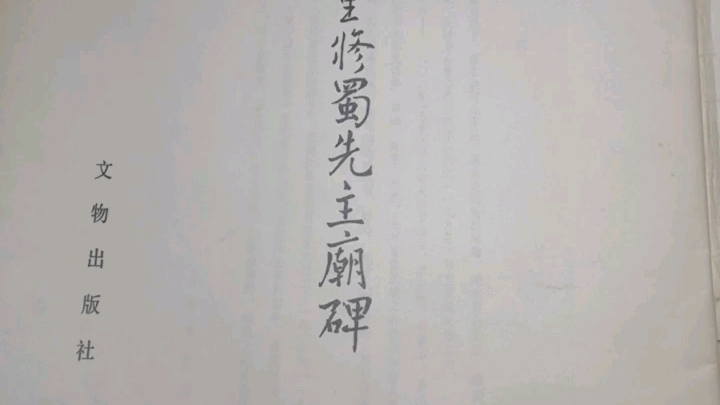 修蜀先主廟碑
文物出版社